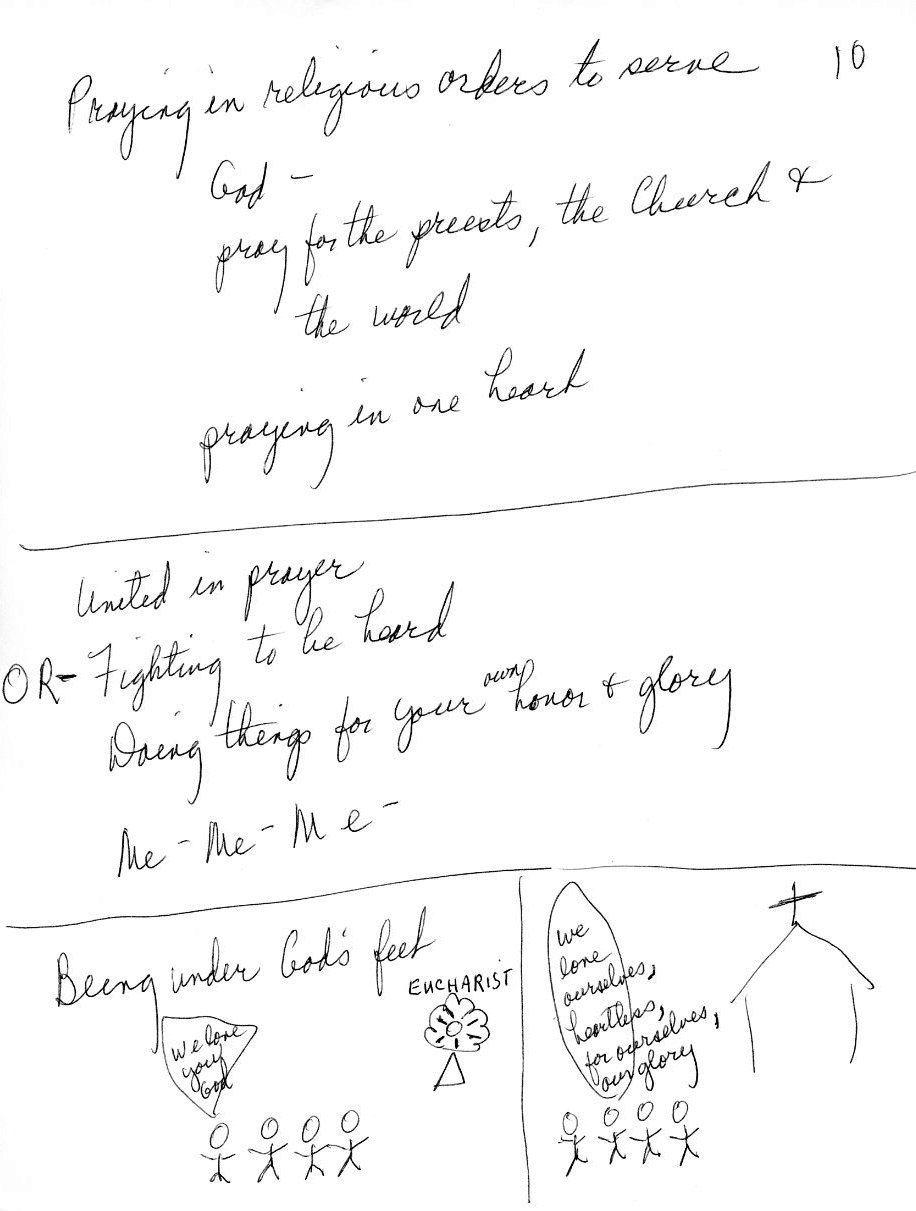 10
Praying in religious orders to serve
God -
pray for the priests, the Church &
the world
praying in one heart
United in prayer
OR- Fighting to be heard
Doing things for your own honor & glory
Me - Me - Me -
Being under God's feet
EUCHARIST
We love
you
God
we
love
ourselves,
heartless,
for ourselves,
our glory